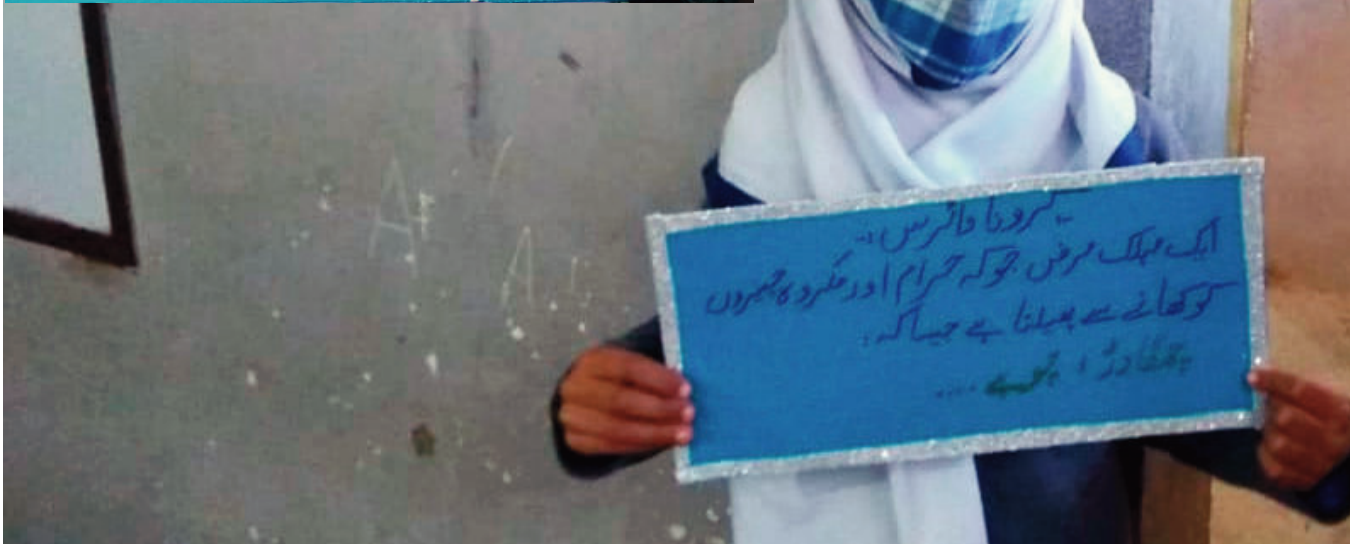 کرونا وائرس:
ایک مہلک مرض جوکہ حرام اور مکروہ چیزوں
کو کھانے سے پھیلتا ہے جیسا کہ:
چمگادڑ، چوہے ....
A
A